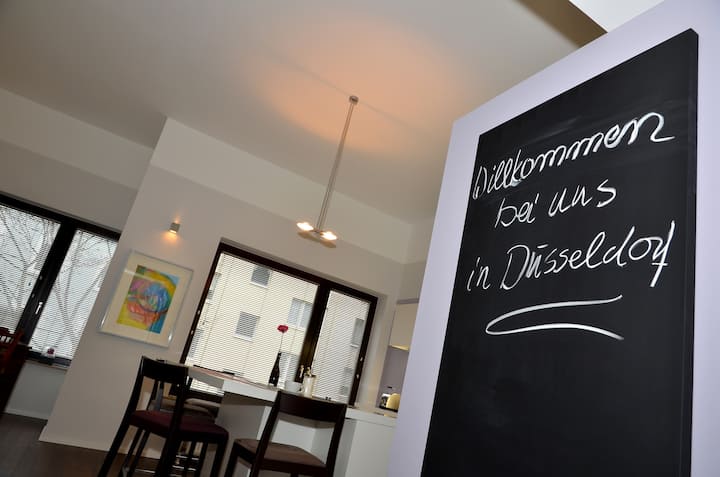 Willkommen
bei uns
in Düsseldorf